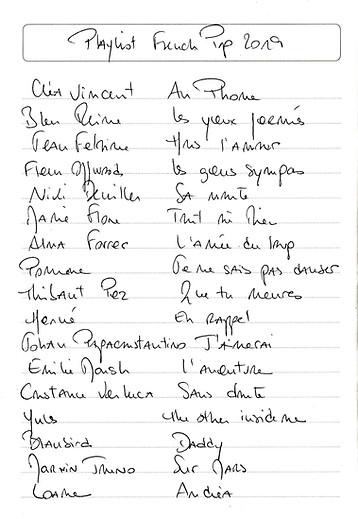 Playlist French Pop 2019
Cléa Vincent An Phone
Bleu Reine Les yeux fermés
Jean Felzine Hors l'amour
Fleur Offwood Les gens sympas
Nicki Demiller SA
Marie Flore Tout ou Rien
Alma Forrer L'année du loup
Pomme Je ne sais pas danser
Thibaut Pez Que tu meures
Hervé En Rappel
Johan Papaconstantino J'aimerai
Emilie Marsh L'aventure
Constance Verluca Sans doute
Yules The other inside me
Blaubird Daddy
Sur Mars
Loane Andréa